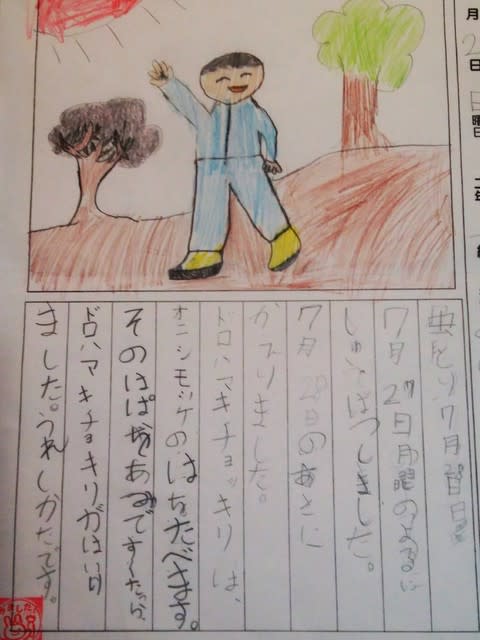 月
日
曜日
虫とり7月28日
7月27日月曜のよるに
しゅっぱつしました。
7月28日のあさに
かえりました。
ドロハマキチョッキリは、
オニシモッケのはをたべます。
そのはぱ
ドロハマキチョキリがはいり
ました。うれしかたです。